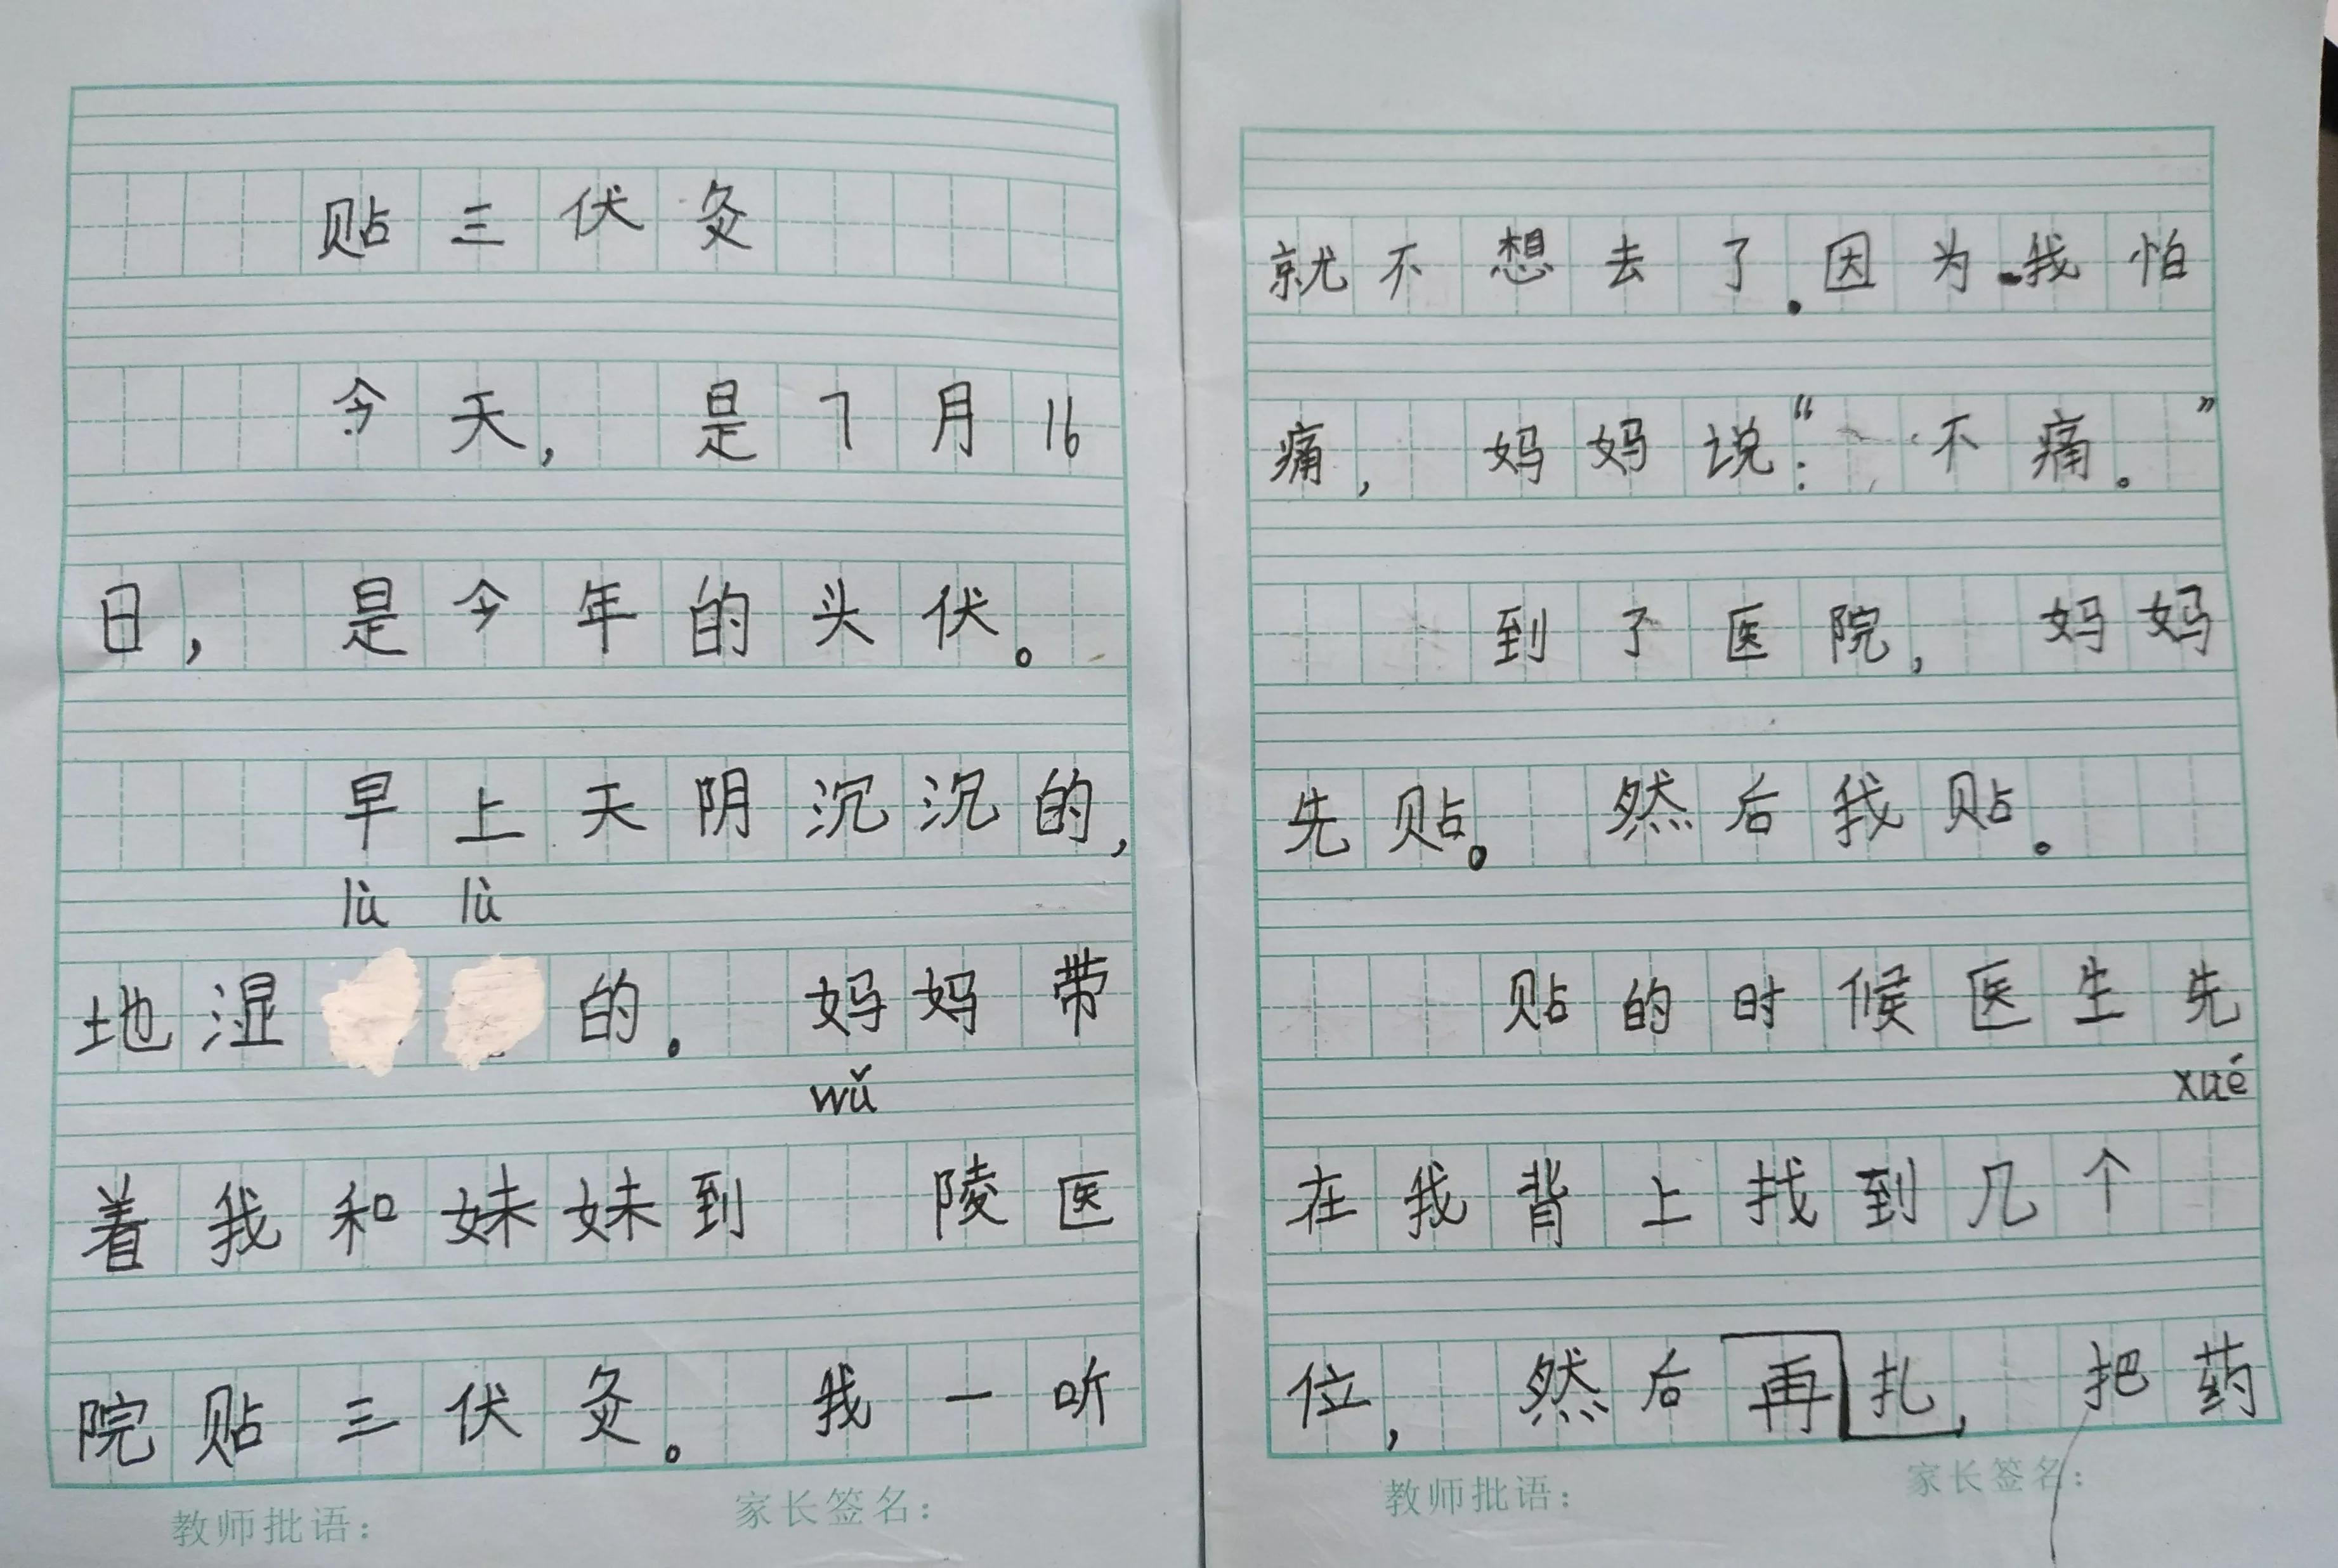 贴三伏灸
今天，是7月16
日，是今年的头伏。
早上天阴沉沉的，
lù lù
地湿的。妈妈带
wǔ
着我和妹妹到 陵医
院贴三伏灸。我一听
教师批语：
家长签名：
就不想去了.因为我怕
痛，妈妈说：“不痛。”
到了医院，妈妈
先贴。然后我贴。
贴的时候医生先
xué
在我背上找到几个
位，然后再扎，把药
教师批语：
家长签名：